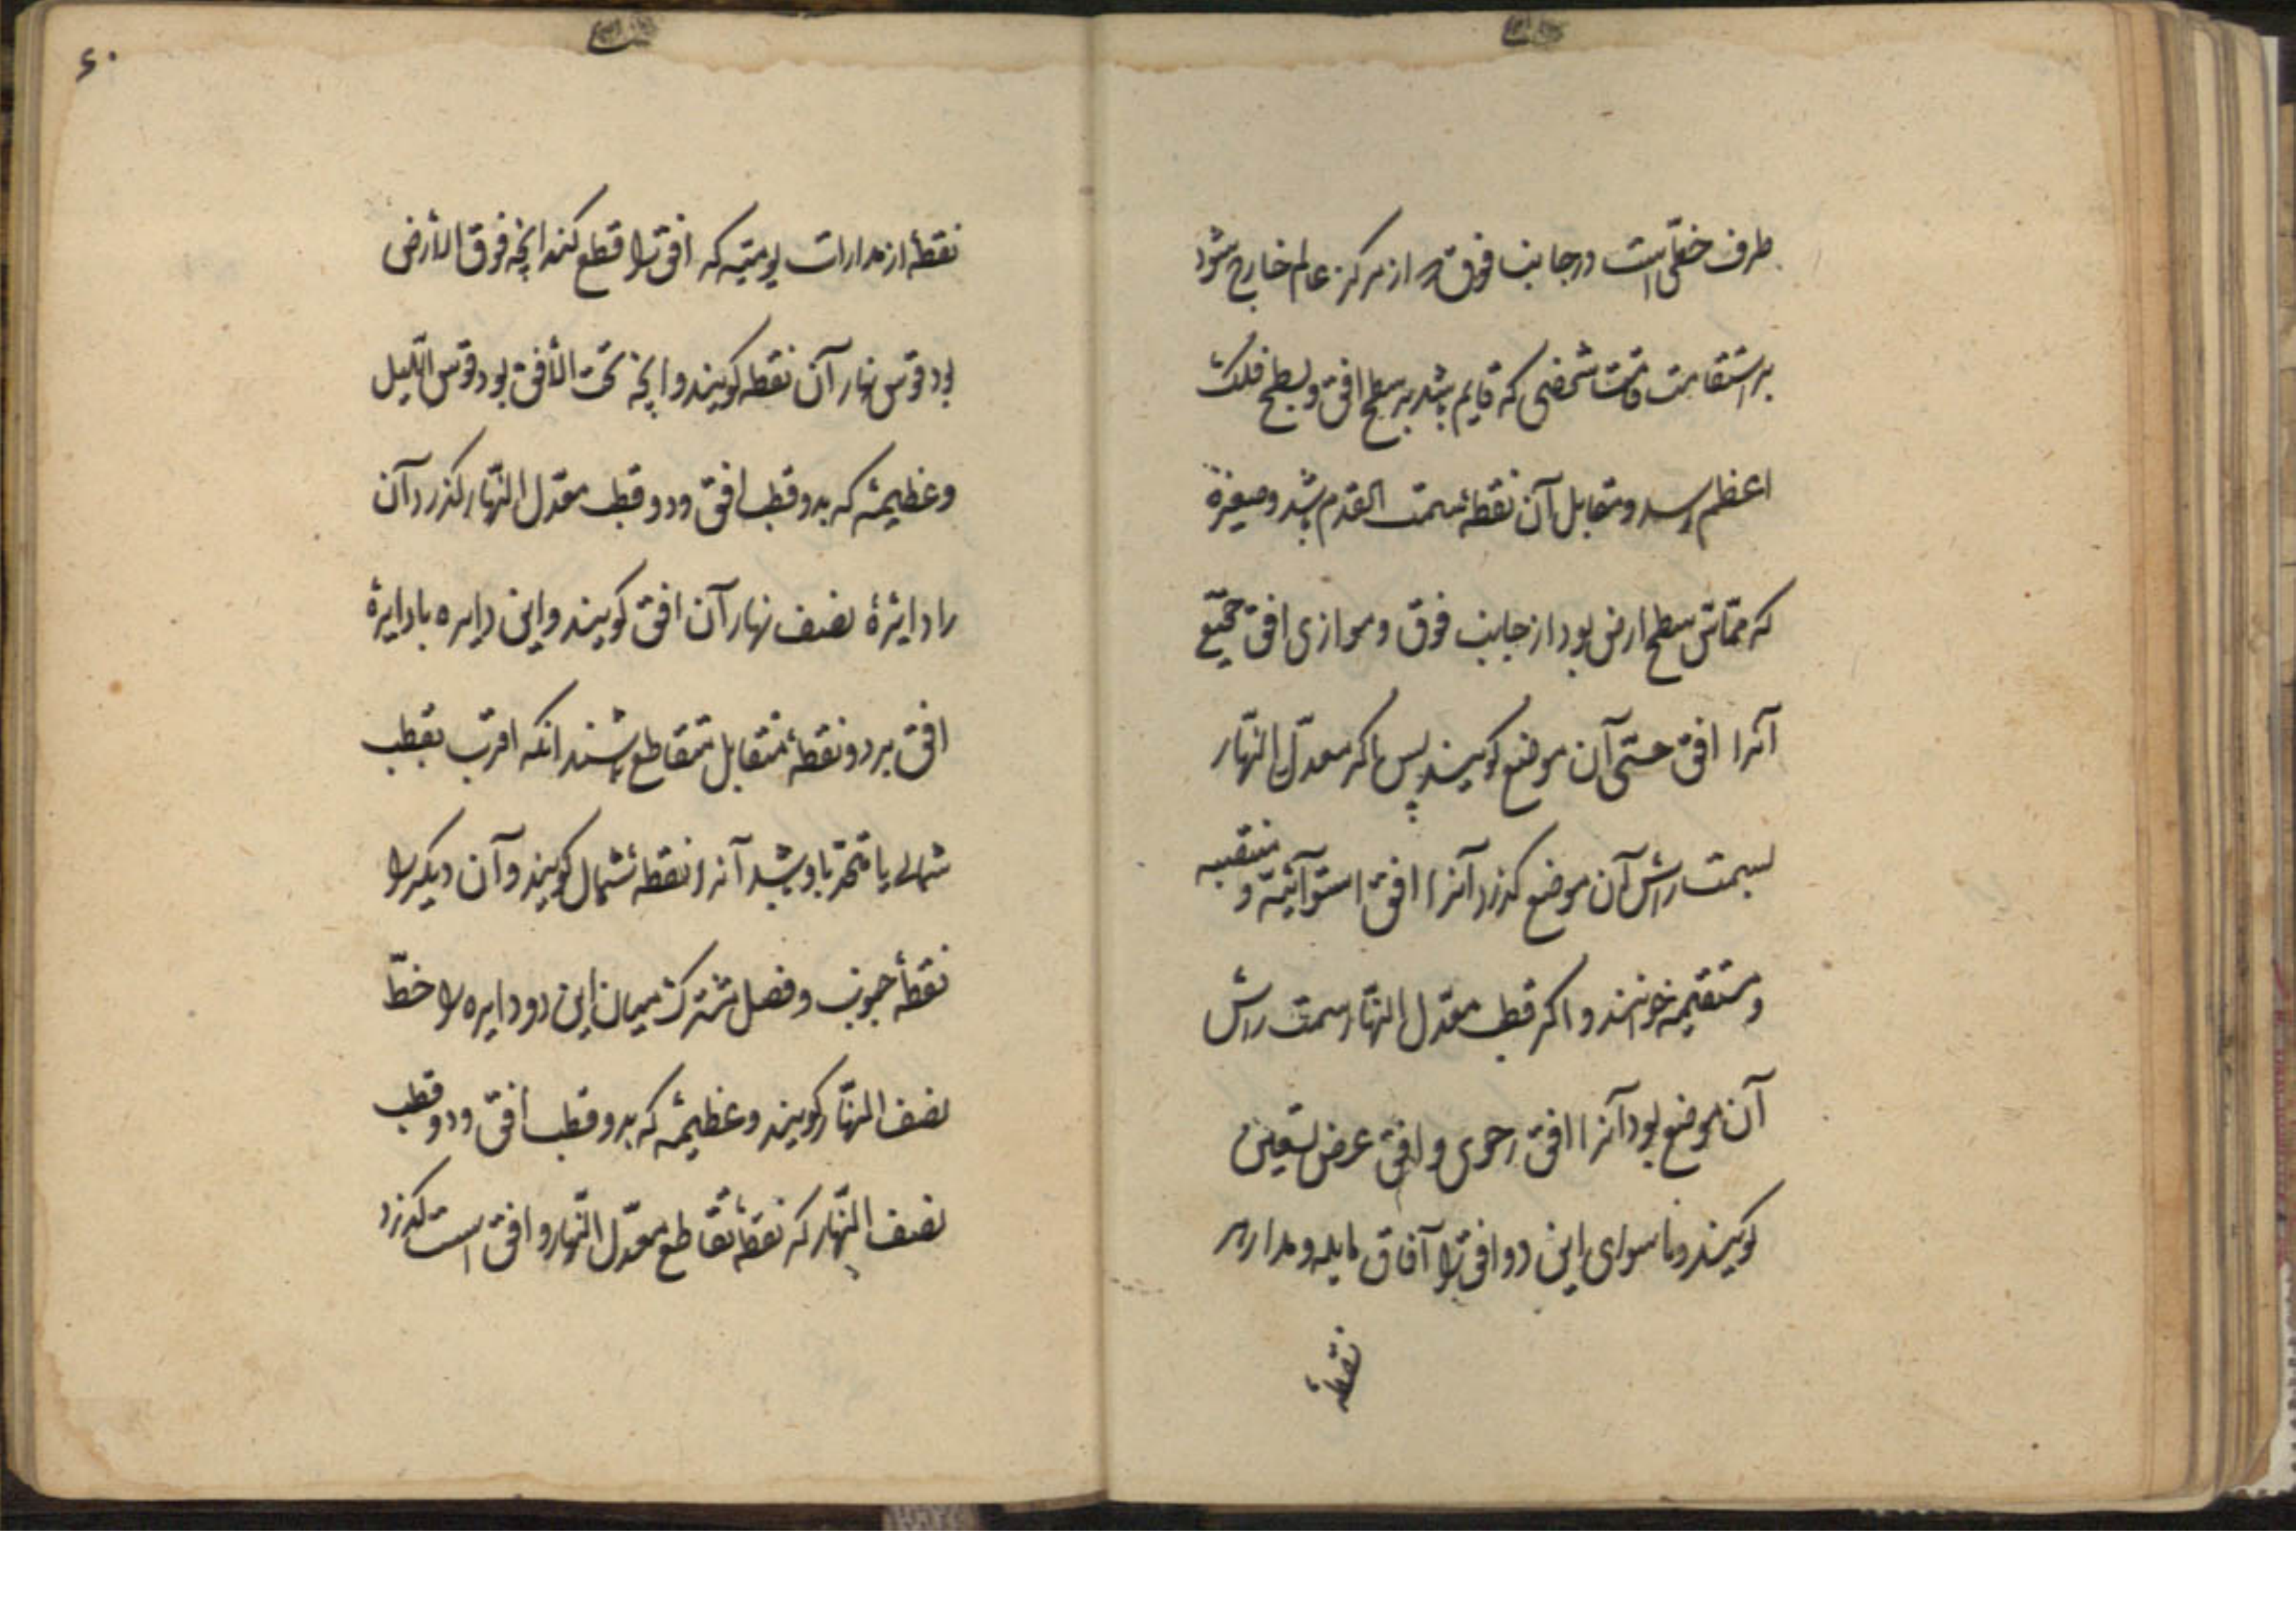 طرف خطی است در جانب فوق که از مرکز عالم خارج شود
بر استقامت قامت شخصی که قایم باشد بر سطح افق و بسطح فلک
اعظم رسد و مقابل آن نقطهٔ سمت القدم باشد و صغیرهٔ
که مماس سطح ارض بود از جانب فوق و موازی افق حقیقی
آنرا افق حسّی آن موضع گویند پس اگر معدّل النّهار
بسمت راس آن موضع گذرد آنرا افق استوائیّه و منتصبه
و مستقیمه خوانند و اگر قطب معدّل النّهار سمت راس
آن موضع بود آنرا افق رحوی و افق عرض تسعین
گویند و ما سوای این دو افق را آفاق مایله و مدار هر
نقطهٔ
۶۰
نقطهٔ از مدارات یومیّه که افق را قطع کند انچه فوق الأرض
بود قوس نهار آن نقطه گویند و انچه تحت الأفق بود قوس اللّیل
و عظیمهٔ که بدو قطب افق و دو قطب معدّل النّهار گذرد آن
را دایرهٔ نصف نهار آن افق گویند و این دایره با دایرهٔ
افق بر دو نقطهٔ متقابل متقاطع باشند انکه اقرب بقطب
شمالی یا متّحد با او باشد آنرا نقطهٔ شمال گویند و آن دیگر را
نقطهٔ جنوب و فصل مشترک میان این دو دایره را خطّ
نصف النّهار گویند و عظیمهٔ که بدو قطب افق و دو قطب
نصف النّهار که نقطهٔ تقاطع معدّل النّهار و افق است گذرد